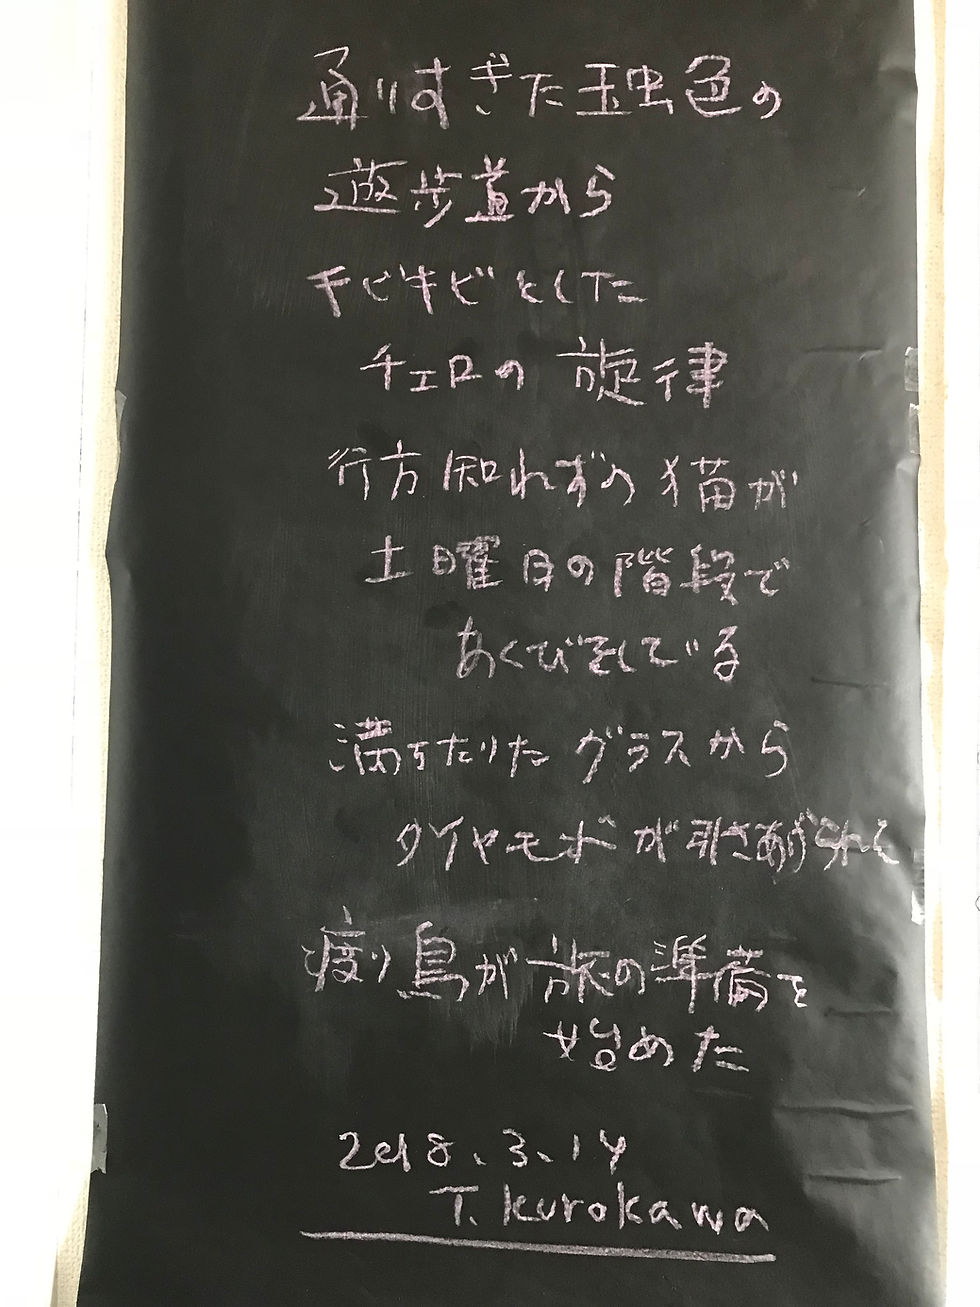 通りすぎた玉虫色の
遊歩道から
キビキビとした
チェロの旋律
行方知れずの猫が
土曜日の階段で
あくびをしている
満ちたりたグラスから
ダイヤモンドが引きあげられて
渡り鳥が旅の準備を
始めた
2018.3.14
T. Kurokawa